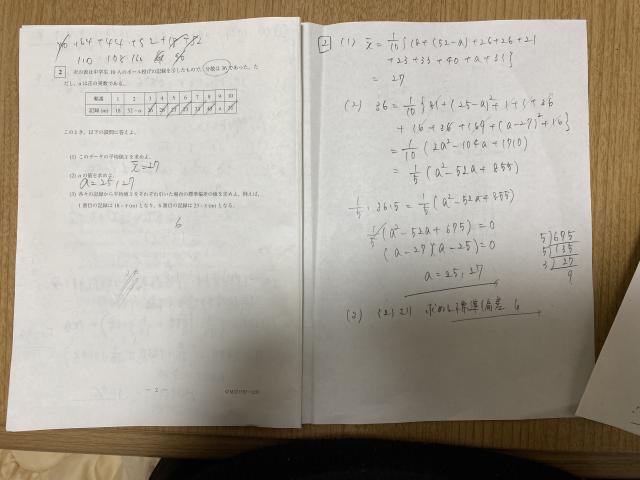 2 次の表は中学生 10 人のボール投げの記録を示したもので,分散は 36 であった。た
だし,aは正の実数である。
番号 1 2 3 4 5 6 7 8 9 10
記録(m) 18 52-a
このとき,以下の設問に答えよ。
(1) このデータの平均値x̄を求めよ。
x̄=27
(2) aの値を求めよ。
a=25,27
1番目の記録は 18-x̄(m)となり,6番目の記録は 23-x̄(m)となる。
6
- 2 -
2 (1) x̄ = 1/10 {18+(52-a)+26+26+21
+23+33+40+a+31}
= 27
(2) 36 = 1/10 {81+(25-a)²+1+1+36
+16+36+169+(a-27)²+16}
= 1/10 (2a²-104a+1710)
= 1/5 (a²-52a+855)
1/5・36・5 = 1/5 (a²-52a+855)
1/5 (a²-52a+675)=0
(a-27)(a-25)=0
a=25,27
5)675
5)135
3)27
9
(2) (2)より 求める標準偏差 6